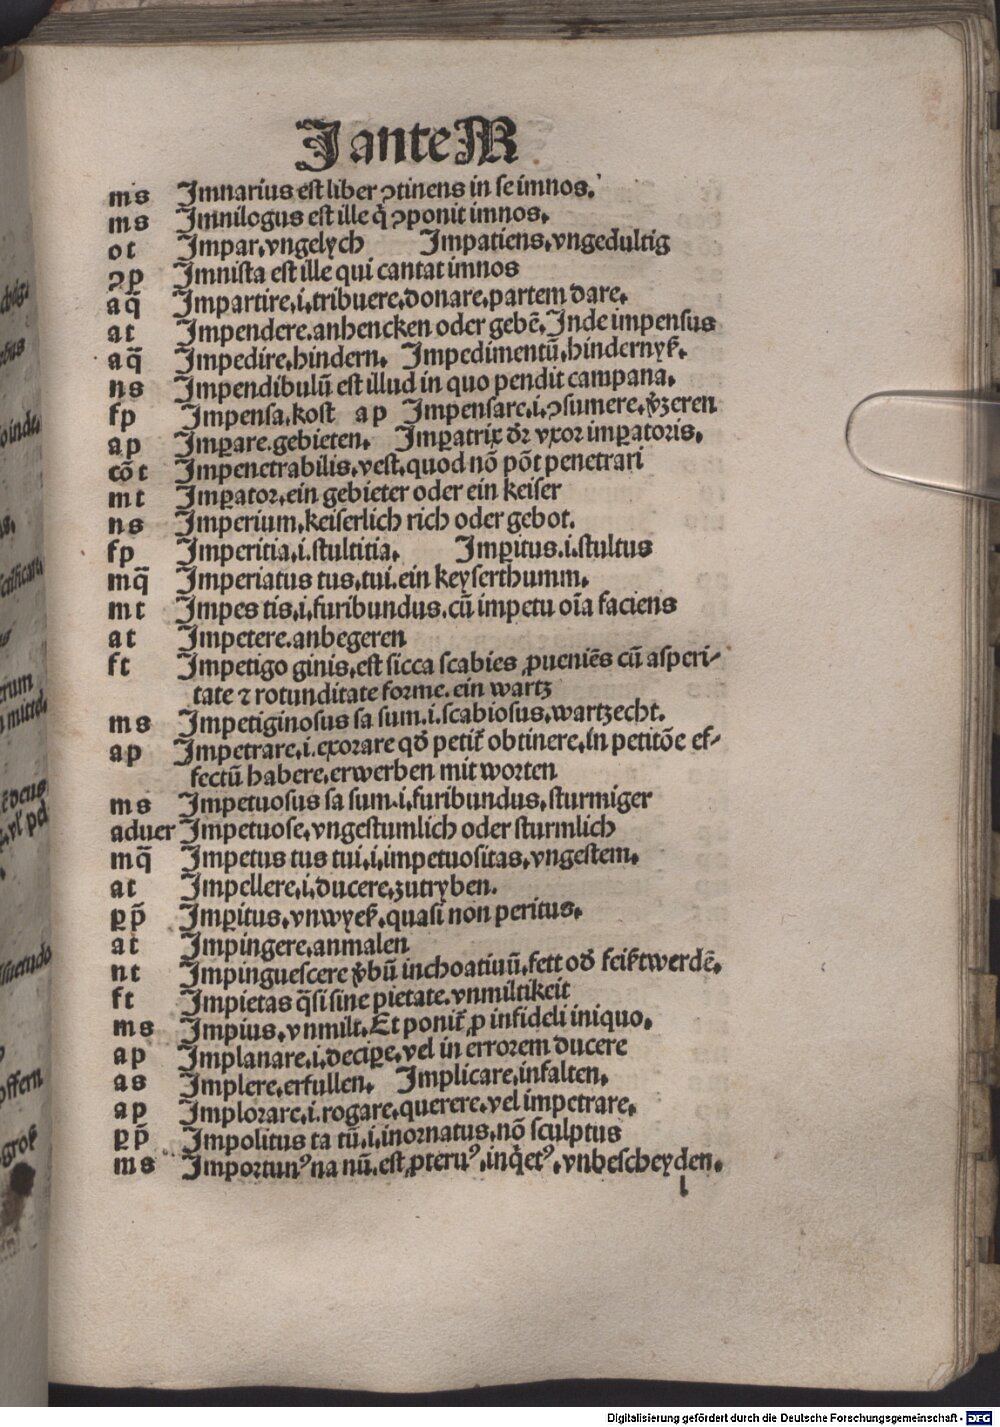 J ante M
ms Jmnarius est liber ꝯtinens in se imnos.
ms Jmnilogus est ille q̄ ꝯponit imnos.
ot Jmpar.vngelych Jmpatiens.vngedultig
ꝯp Jmnista est ille qui cantat imnos
aq̄ Jmpartire.i.tribuere.donare.partem dare.
at Jmpendere.anhencken oder gebē.Jnde impensus
aq̄ Jmpedire.hindern. Jmpedimentū.hindernyß.
ns Jmpendibulū est illud in quo pendit campana.
fp Jmpensa.kost ap Jmpensare.i.ꝯsumere.v̓zeren
ap Jmꝑare.gebieten. Jmꝑatrix dr̄ vxor imꝑatoris.
cōt Jmpenetrabilis.vest.quod nō pōt penetrari
mt Jmꝑator.ein gebieter oder ein keiser
ns Jmperium.keiserlich rich oder gebot.
fp Jmperitia.i.stultitia. Jmꝑitus.i.stultus
mq̄ Jmperiatus tus.tui.ein keyserthumm.
mt Jmpes tis.i.furibundus.cū impetu oīa faciens
at Jmpetere.anbegeren
ft Jmpetigo ginis.est sicca scabies ꝓueniēs cū asperi-
tate ⁊ rotunditate forme.ein wartz
ms Jmpetiginosus sa sum.i.scabiosus.wartzecht.
ap Jmpetrare.i.exorare qd̄ petit̄ obtinere.in petitōe ef-
fectū habere.erwerben mit worten
ms Jmpetuosus sa sum.i.furibundus.sturmiger
aduer Jmpetuose.vngestumlich oder sturmlich
mq̄ Jmpetus tus tui.i.impetuositas.vngestem.
at Jmpellere.i.ducere.zutryben.
ꝑp̄ Jmꝑitus.vnwyß.quasi non peritus.
at Jmpingere.anmalen
nt Jmpinguescere v̓bū inchoatiuū.fett od̓ feißt werdē.
ft Jmpietas q̄si sine pietate.vnmiltikeit
ms Jmpius.vnmilt.Et ponit̄ ꝓ infideli iniquo.
ap Jmplanare.i.deciꝑe.vel in errorem ducere
as Jmplere.erfullen. Jmplicare.infalten.
ap Jmplorare.i.rogare.querere.vel impetrare.
ꝑp̄ Jmpolitus ta tū.i.inornatus.nō sculptus
ms Jmportunꝰ na nū.est ꝓteruꝰ.inq̇etꝰ.vnbescheyden.
l
Digitalisierung gefördert durch die Deutsche Forschungsgemeinschaft - DFG